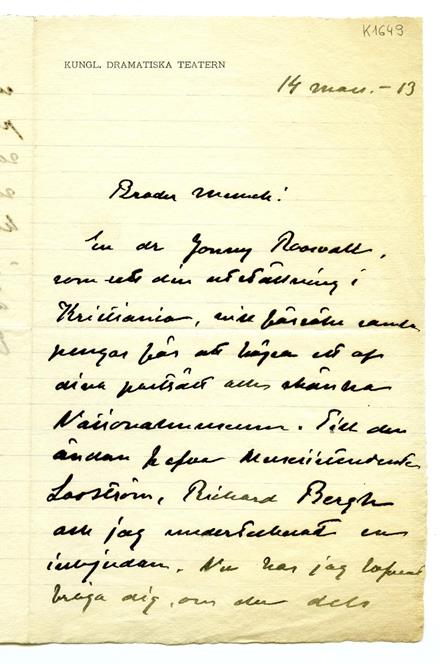 K1649
KUNGL. DRAMATISKA TEATERN
14 mars. – 13
Broder Munch!
En dr Jonny Roosvall,
som sett din utställning i
Kristiania, vill försöka samla
pengar för att köpa ett af
dina porträtt och skänka
Nationalmuseum. Till den
ändan hafva
Looström, Richard Bergh
och jag undertecknat en
inbjudan. Nu har jag lofvat
fråga dig, om du dels